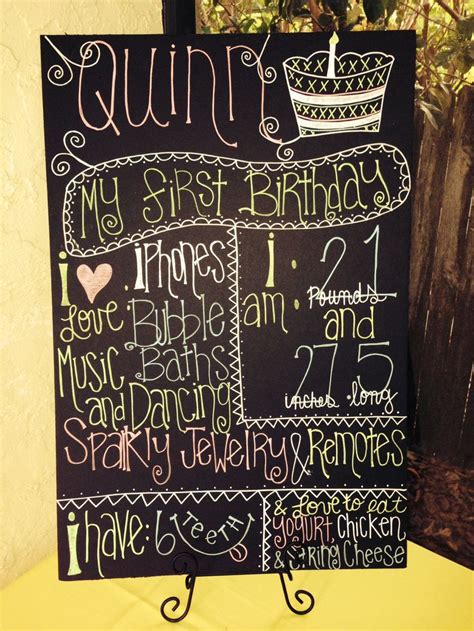 Quinn
My First Birthday
i ♥ iPhones
Love: Bubble
Music Baths
and Dancing
Sparkly Jewelry & Remotes
i : 21
am : Pounds
and
27.5
inches long
i have: 6 Teeth
& Love to eat
Yogurt, Chicken
& String Cheese